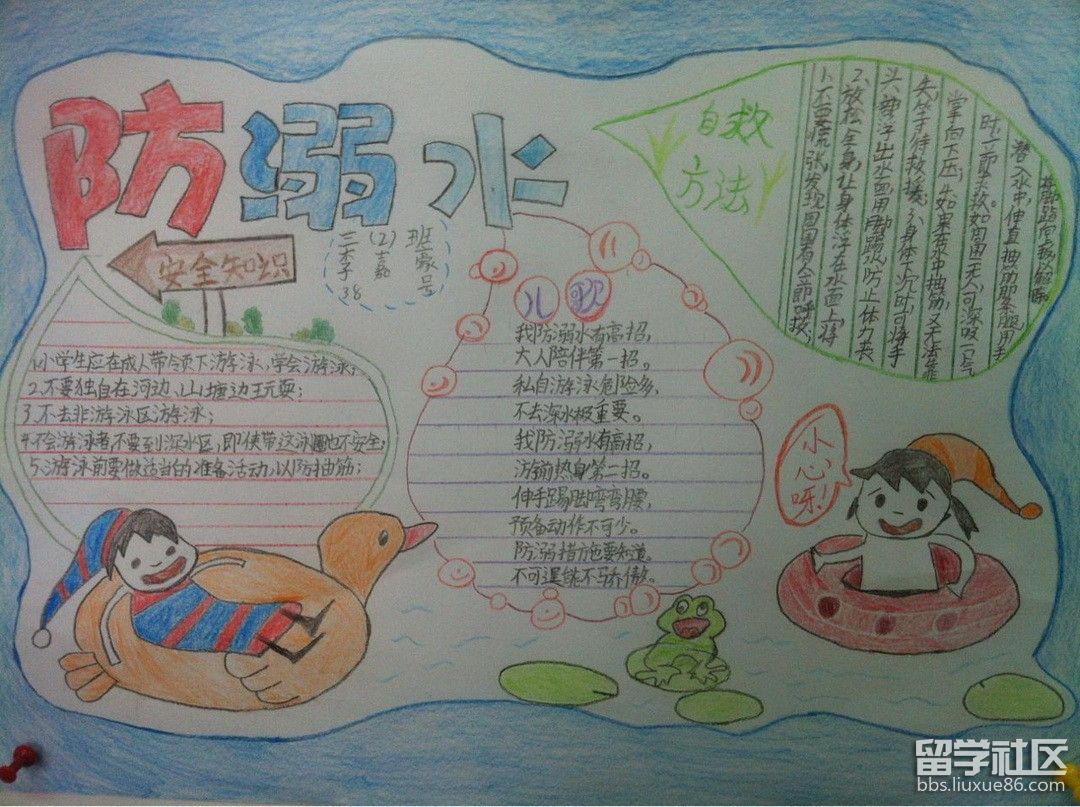 防溺水
安全知识
三(2)班
李嘉豪
38号
1.小学生应在成人带领下游泳,学会游泳;
2.不要独自在河边、山塘边玩耍;
3.不去非游泳区游泳;
4.不会游泳者不要到深水区,即使带这泳圈也不安全;
5.游泳前要做适当的准备活动,以防抽筋;
儿歌
我防溺水有高招,
大人陪伴第一招。
私自游泳危险多,
不去深水极重要。
我防溺水有高招,
游前热身第二招。
伸手踢脚弯弯腰,
预备动作不可少。
防溺措施要知道。
不可逞能不骄傲。
自救
方法
1、不要慌张,发现周围有人立即呼救;
2、放松全身,让身体浮在水面上,将
头部浮出水面,用脚踢水,防止体力丧
失,等待救援;3、身体下沉时,可将手
掌向下压;4、如果在水中抽筋,又无法靠
时,立即求救。如周围无人,可深吸一口气
潜入水中,伸直抽筋那条腿,用手
小心呀!
留学社区
bbs.liuxue86.com